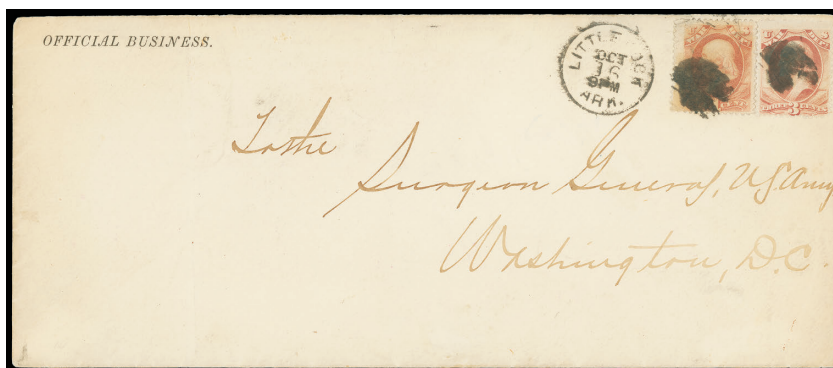 OFFICIAL BUSINESS.
LITTLE ROCK
DEC
16
9PM
ARK.
THREE 3 CENTS
To the
Surgeon General, US Army
Washington, D.C.